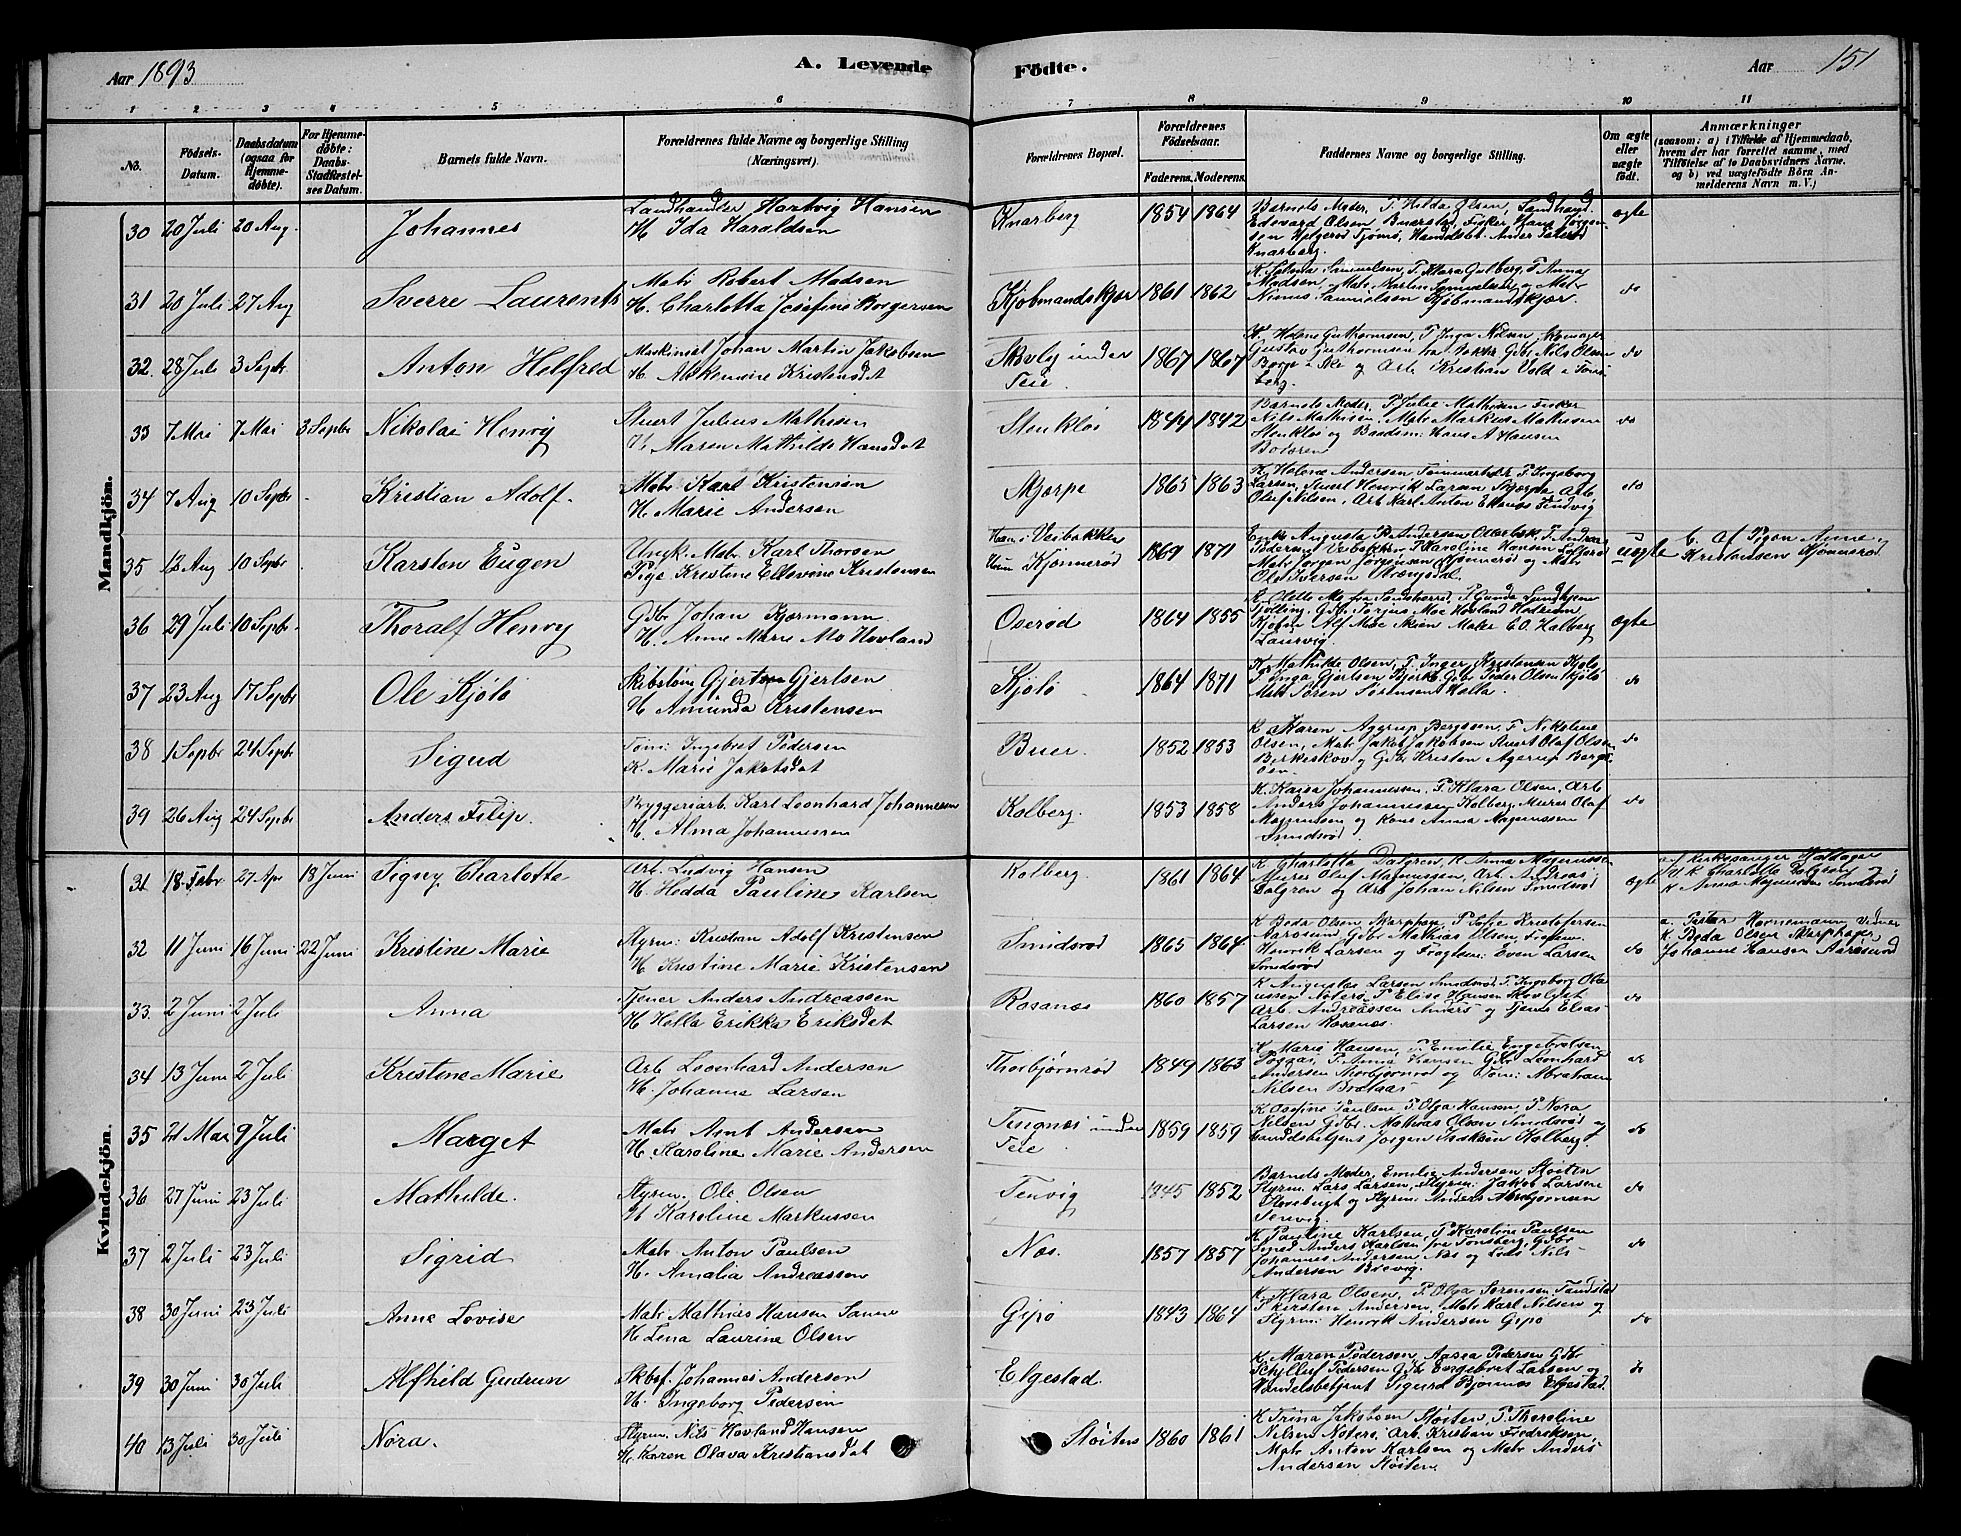 Aar 1893
A. Levende
Fødte.
Aar
151
1 2 3 4 5 6 7 8 9 10 11
No.
Fødsels-
Datum.
Daabsdatum
(ogsaa for
Hjemme-
døbte).
For Hjemme-
døbte:
Daabs-
Stadfæstel-
ses Datum.
Barnets fulde Navn.
Forældrenes fulde Navne og borgerlige Stilling
(Næringsvei).
Forældrenes Bopæl.
Forældrenes
Fødselsaar.
Faderens. Moderens.
Faddernes Navne og borgerlige Stilling.
Om ægte
eller
uægte
født.
Anmærkninger
(saasom: a) i Tilfælde af Hjemmedaab,
hvem der har forrettet samme, med
Tilføielse af to Daabsvidners Navne.
og b) ved uægtefødte Børn An-
melderens Navn m. V.)
Mandkjön.
30 20 Juli 20 Aug. Johannes
Landhandler Hartvig Hansen
H. Ida Haraldsen
Knarberg 1854 1864
Barnets Moder, P. Hilda Olsen, Landhand.
Edvard Olsen Buerstad, Fisker Hans Jørgen-
sen Helgerød Tjømø,
Knarberg.
ægte
31 20 Juli 27 Aug Sverre Laurents
Matr Robert Madsen
H. Charlotta Josefine
Kjøbmandskjær 1861 1862
K. Selma Samuelsen, P. Klara Gulberg, P. Anna
Madsen, Matr. Morten Samuelsen og Matr
Samuelsen Kjøbmandskjær.
do
32. 28 Juli 3 Septr Anton Helfred
Maskinist Johan Martin Jakobsen
H. Kristensdat
Skovly under
Teie. 1867 1867
K. Helene Guthormsen, P. Inga Nilsen, Skomager
Gustav Guthormsen fra Bakke Gdbr. Nils Olsen
Borge i Ske og Arb. Kristian Vold i Tøns-
berg.
do
33 7 Mai 7 Mai 3 Septbr Nikolai Henry
Stuert Julius Mathisen
H. Maren Mathilde Hansdat
Stenkløs 1844 1842
Barnets Moder, P. Julie Mathisen Fisker
Nils Mathisen, Matr Markus Mathisen
Stenkløs og Baadsm: Hans A Hansen
Bolæren
do
34 7 Aug 10 Septbr Kristian Adolf.
Matr. Karl Kristensen
H. Marie Andersen
Skjerpe 1865 1863
K. Helene Andersen P. Ingeborg
Larsen, Stuert Henrik Larsen Skjerpe, Arb.
Oluf Nilsen, Arb Karl Anton
do
35 12 Aug 10 Septr. Karsten Eugen
Ungk. Matr. Karl Thorsen
Pige Kristine Kristensen
Han: Veibakken
Hun Kjønnerød 1869 1871
Enke Augusta Andersen P. Andrea
Pedersen Veibakken P. Karoline Hansen
Matr Jørgen Jørgensen Kjønnerød og Matr
Ole Iversen Strengsdal.
uægte
b. af Pigen Anne
Kristensen Kjønnerød
36 29 Juli 10 Septbr. Thoralf Henry
Gdbr Johan Kjærmann
H. Anne Marie Moe Hovland
Oserød 1864 1855
Tjølling, Gdbr. Torjus Moe Hovland Hedrum
Alf Moe Skien Maler C.O. Halberg
Laurvig.
ægte
37 23 Aug 17 Septbr Ole Kjølø
Skibstøm Gjert Gjertsen
H Amunda Kristensen
Kjølø 1864 1871
K. Mathilde Olsen, P. Inger Kristensen Kjølø
P Inga Gjertsen Bjerke Gdbr Peder Olsen Kjølø
Matr Søren Sørensen Holla.
do
38 1 Septbr 24 Septbr Sigud
Tøm: Ingebret Pedersen
K. Marie Jakobsdat
Buer. 1852 1853
K Maren Aggerup Bergsøen, P Nikoline
Olsen, Matr Jakob Jakobsen Stuert Olaf Olsen
Birkeskov og Gdbr Kristen Agerup Berg-
øen
do
39 26 Aug 24 Septbr Anders Filip.
Bryggeriarb. Karl Leonhard Johannesen
H. Alma Johannessen
Kolberg. 1853 1858
K. Kaisa Johannessen, P. Klara Olsen, Arb
Anders Johannessen Kolberg, Murer Olaf
Magnussen og Kone Anna Magnussen
Smidsrød
do
Kvindekjön.
31 18 Febr. 27 Apr 18 Juni Signy Charlotte
Arb. Ludvig Hansen
H. Hedda Pauline Karlsen
Kolberg. 1861 1864
K Charlotte Dalgren, K Anna Magnussen
Murer Oluf Magnussen, Arb. Andreas
Dalgren og Arb Johan Nilsen Smidsrød
ægte
a. af Kirkesanger Haldager
K Charlotte Dalgren og
K Anna Magnussen Smidsrød
32 11 Juni 16 Juni 22 Juni Kristine Marie
Styrm: Kristian Adolf Kristensen
H Kristine Marie Kristensen
Smidsrød 1865 1864
K Beda Olsen Skarphagen, P Sofie Kristofersen
Aarøsund, Gdbr Mathias Olsen,
Henrik Larsen og Fragtsm: Even Larsen
Smidsrød
do
a. Pastor Hornemann Vidner
K. Beda Olsen Skarphagen
Johanne Hansen Aarøsund
33. 2 Juni 2 Juli Anna
Tjener Anders Andreassen
H Hella Erikka Eriksdat
Rosanes 1860 1857
K Augusta Larsen Smidsrød, P. Ingeborg Ola-
ussen Nøterø, P Elise Hansen
Arb. Andreassen og Tjener Elias
Larsen Rosanes.
do
34 13 Juni 2 Juli Kristine Marie
Arb Leonhard Andersen
H. Johanne Larsen
Thorbjørnrød 1849 1863
K Marie Hansen, P. Emilie Engebretsen
P. Anna Hansen Gdbr Leonhard
Andersen Thorbjørnrød og Tøm: Abraham
Nilsen Brataas
do
35 21 Mai 9 Juli Marget
Matr Arnt Andersen
H. Karoline Marie Andersen
Tingnes under
Teie. 1859 1859
K Josefine Paulsen P. Olga Hansen, P. Nora
Nilsen Gdbr. Mathias Olsen Smidsrød og
Handelsbetjent Jørgen Isaksen Kolberg.
do
36 27 Juni 23 Juli Mathilde.
Styrm. Ole Olsen
H Karoline Markussen
Tenvig 1845 1852
Barnets Moder, Emilie Andersen Støiten
Styrm. Lars Larsen, Styrm: Jakob Larsen
og Styrm: Anders Abrahamsen
Tenvig.
do
37 2 Juli 23 Juli Sigrid
Matr Anton Paulsen
H. Amalia Andreassen
Næs. 1857 1857
K. Pauline Karlsen, P Karoline Paulsen
Anders Karlsen fra Tønsberg, Gdbr
Johannes Andersen Næs og Lods Nils
Andersen Brevig.
do
38 30 Juni 23 Juli Anne Lovise
Matr Mathias Hansen Sanne
H. Lena Laurine Olsen
Gipø 1843 1864
K. Klara Olsen, P. Olga Sørensen,
P Kirsten Andersen, Matr Karl Nilsen og
Styrm: Henrik Andersen Gipø
do
39 30 Juni 30 Juli Alfhild Gudrun
Skbsf. Johannes Andersen
H. Ingeborg Pedersen
Elgestad.
K. Maren Pedersen, Aasea Pedersen Gdbr
Pedersen Gdbr Engebret Larsen og
Handelsbetjent Sigurd Bjønnes Elgestad.
do
40 13 Juli 30 Juli Nora.
Styrm. Nils Hovland Hansen
H. Karen Olava Kristiansdat
Støiten 1860 1861
K Trina Jakobsen Støiten, P. Thoraline
Nilsen Nøterø, Arb. Kristian Fredriksen,
Matr Anton Karlsen og Matr Anders
Andersen Støiten.